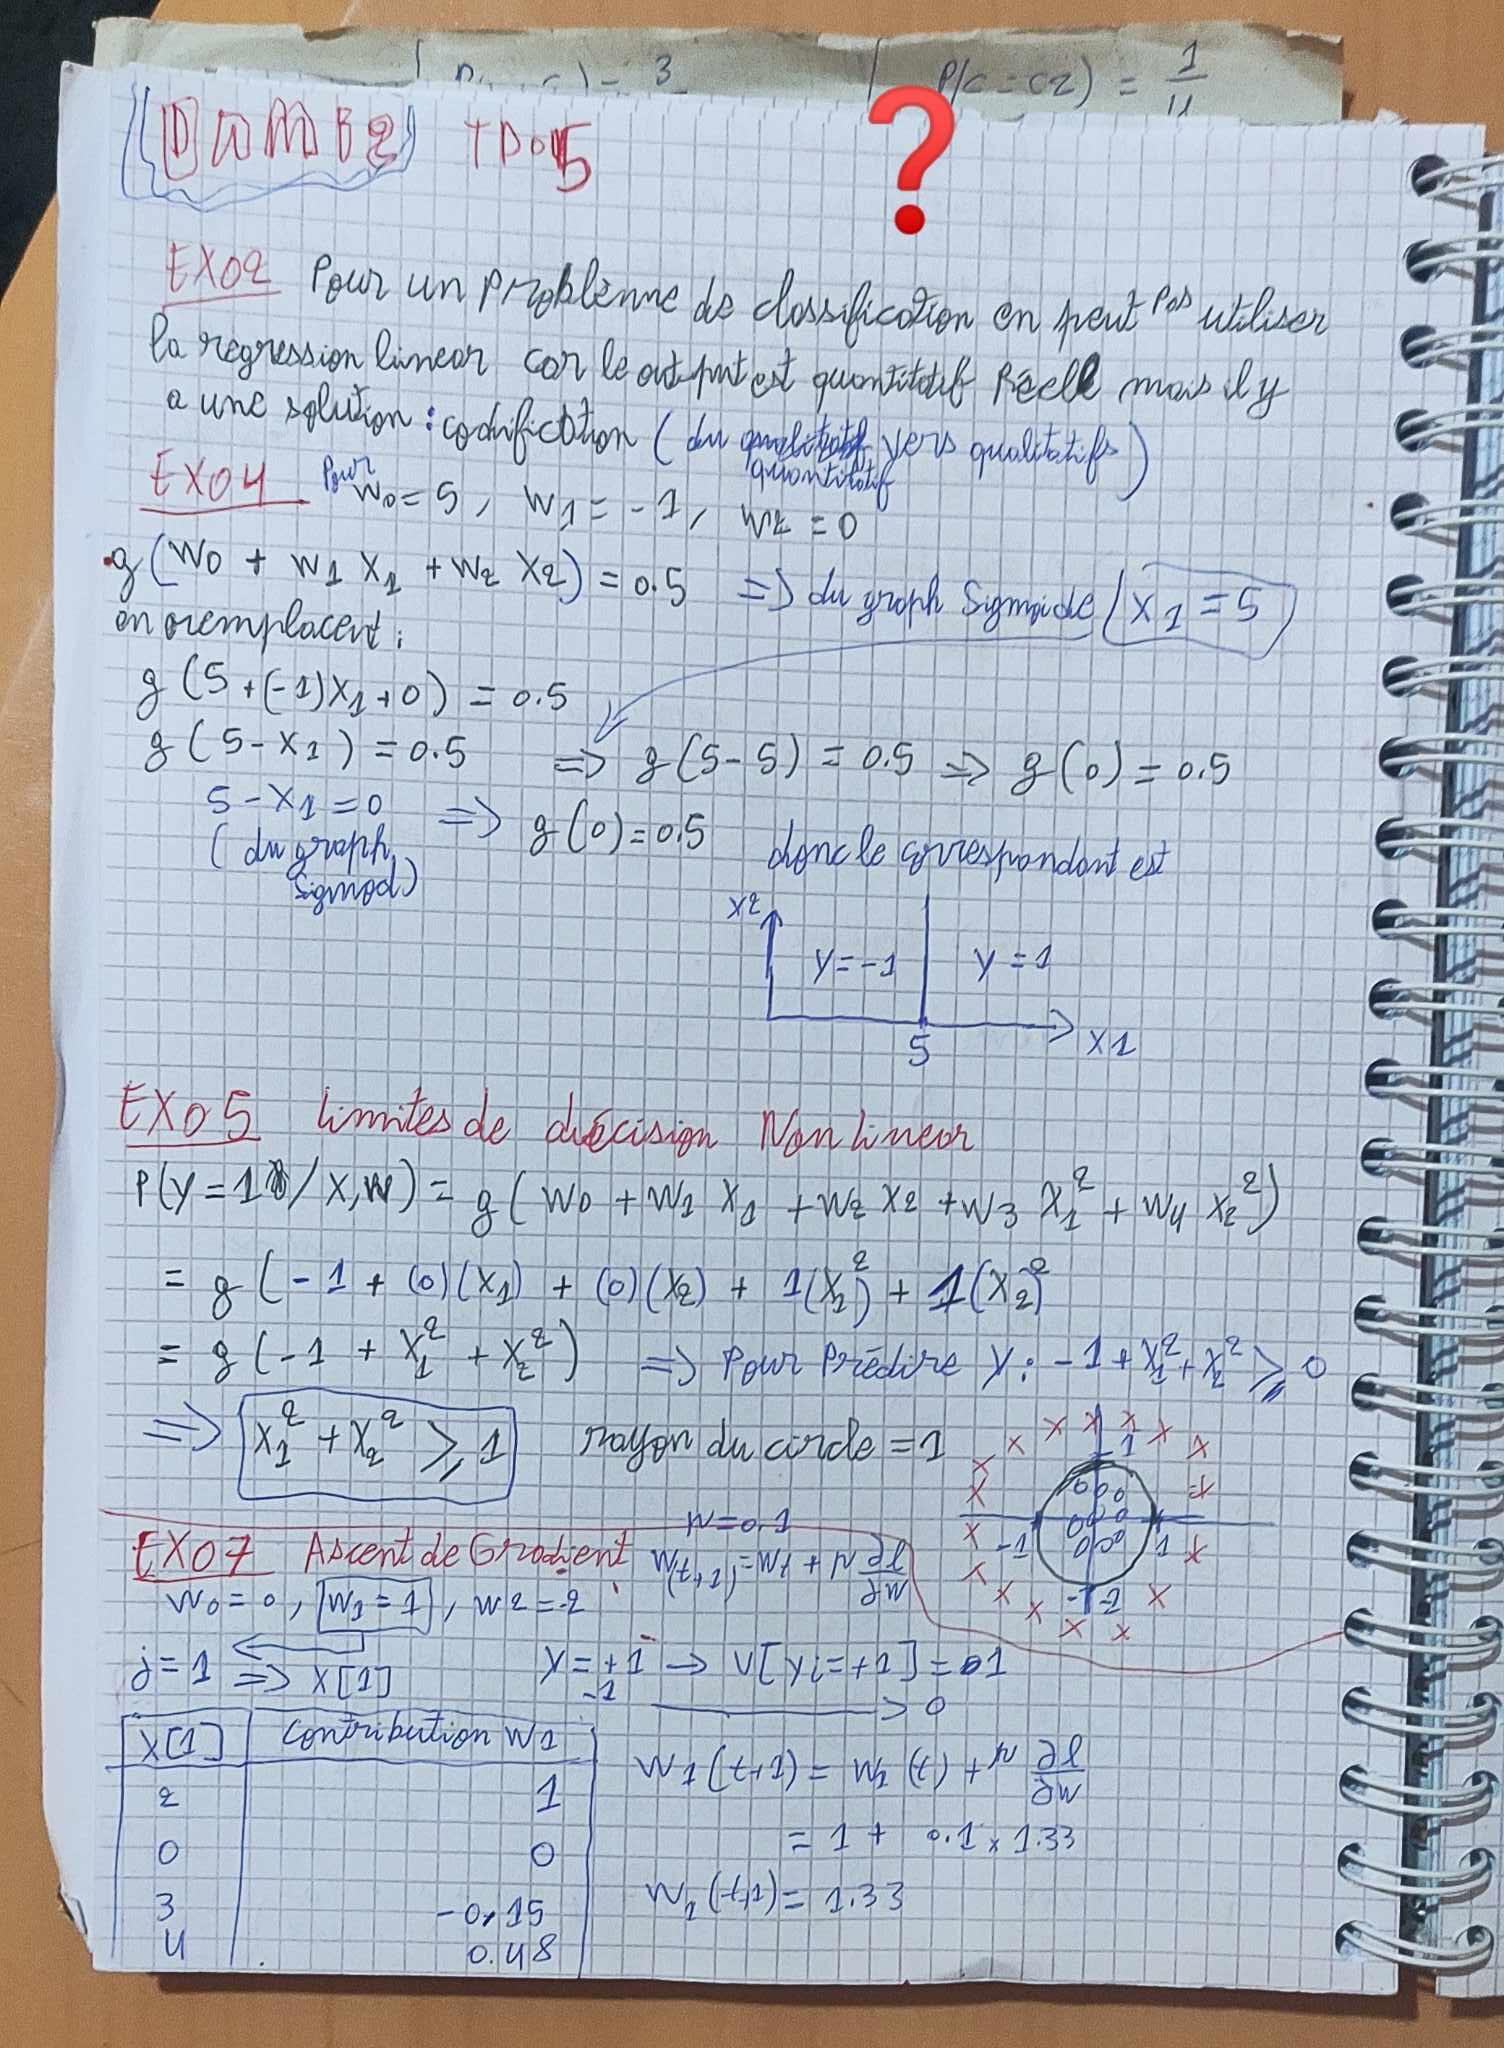 P(c=c2) = 1
DWMB2 TD05
?
EX02 Pour un problènne de classification en peut pas utiliser
la regression linear car le output est quantitatif Réelle mais il y
a une solution : codification (du quantitatif vers qualitatifs)
EX04 Pour W0=5, W1=-1, W2=0
g(W0 + W1 X1 + W2 X2) = 0.5 => du graph Sigmoide X1=5
en remplacent :
g(5+(-1)X1+0) = 0.5
g(5-X1) = 0.5 => g(5-5) = 0.5 => g(0) = 0.5
5-X1=0 => g(0)=0.5 donc le correspondant est
(du graph
Sigmod)
X2
Y=-1 Y=1
5 X1
EX05 Limites de décision Non linear
P(Y=1/X,W) = g(W0 + W1 X1 + W2 X2 + W3 X1² + W4 X2²)
= g(-1 + (0)(X1) + (0)(X2) + 1(X1²) + 1(X2²)
= g(-1 + X1² + X2²) => Pour Prédire Y: -1+X1²+X2² ⩾ 0
=> X1² + X2² ⩾ 1 rayon du circle = 1
1
-1 1
-1
EX07 Ascent de Gradient
M=0.1
W(t+1)=Wt + M ∂l/∂W
W0=0, W1=1, W2=-2
j=1 => X[1] Y=+1 → 1[Yi=+1]=1
-1 → 0
X[1] Contribution W1
2 1
0 0
3 -0.15
4 0.48
W1(t+1) = W1(t) + M ∂l/∂W
= 1 + 0.1 x 1.33
W1(t+1) = 1.33